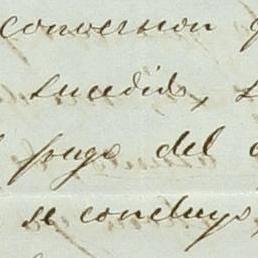 conversion
sucedido,
pago del
se concluyo,